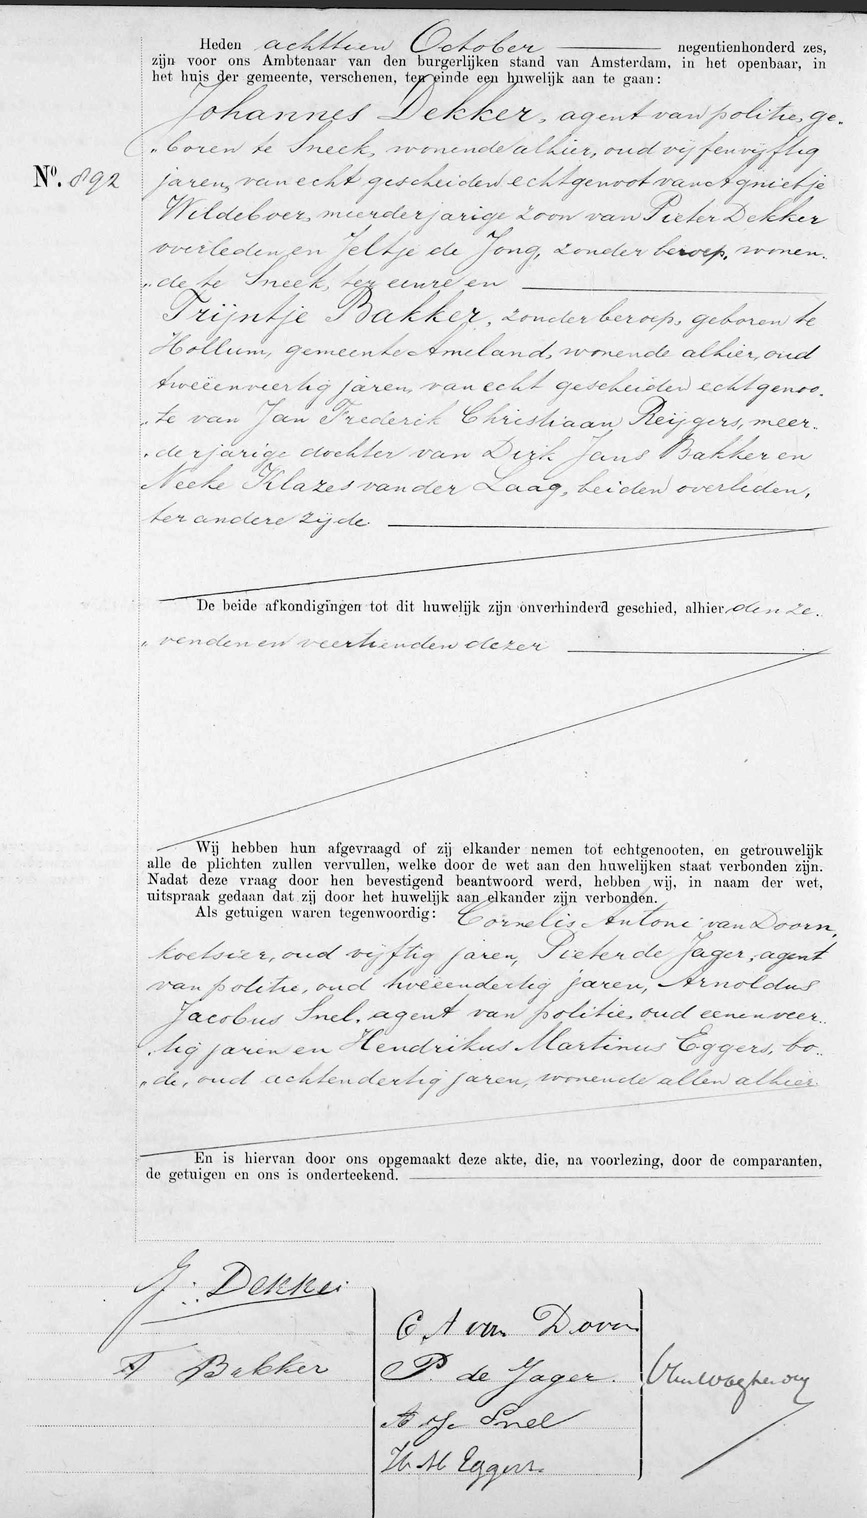 Heden achttien October negentienhonderd zes,
zijn voor ons Ambtenaar van den burgerlijken stand van Amsterdam, in het openbaar, in
het huis der gemeente, verschenen, ten einde een huwelijk aan te gaan:
Johannes Dekker, agent van politie, ge-
boren te Sneek, wonende alhier, oud vijfenvijftig
No. 892
jaren, van echt gescheiden echtgenoot van Agnietje
Wildeboer, meerderjarige zoon van Pieter Dekker
overleden, en Jeltje de Jong, zonder beroep, wonen-
„de te Sneek, ter eenre en
Trijntje Bakker, zonder beroep, geboren te
Hollum, gemeente Ameland, wonende alhier, oud
tweeënveertig jaren, van echt gescheiden echtgenoo-
„te van Jan Frederik Christiaan Reijgers, meer-
„derjarige dochter van Dirk Jans Bakker en
Neeke Klazes van der Laag, beiden overleden,
ter andere zijde.
De beide afkondigingen tot dit huwelijk zijn onverhinderd geschied, alhier den ze-
„venden en veertienden dezer
Wij hebben hun afgevraagd of zij elkander nemen tot echtgenooten, en getrouwelijk
alle de plichten zullen vervullen, welke door de wet aan den huwelijken staat verbonden zijn.
Nadat deze vraag door hen bevestigend beantwoord werd, hebben wij, in naam der wet,
uitspraak gedaan dat zij door het huwelijk aan elkander zijn verbonden.
Als getuigen waren tegenwoordig: Cornelis Antoni van Doorn,
koetsier, oud vijftig jaren, Pieter de Jager, agent
van politie, oud tweeëndertig jaren, Arnoldus
Jacobus Snel, agent van politie, oud eenenveer-
„tig jaren en Hendrikus Martinus Eggers, bo-
„de, oud achtendertig jaren, wonende allen alhier.
En is hiervan door ons opgemaakt deze akte, die, na voorlezing, door de comparanten,
de getuigen en ons is onderteekend.
J. Dekker
T Bakker
C A van Doorn
P. de Jager.
A J Snel
H M Eggers.